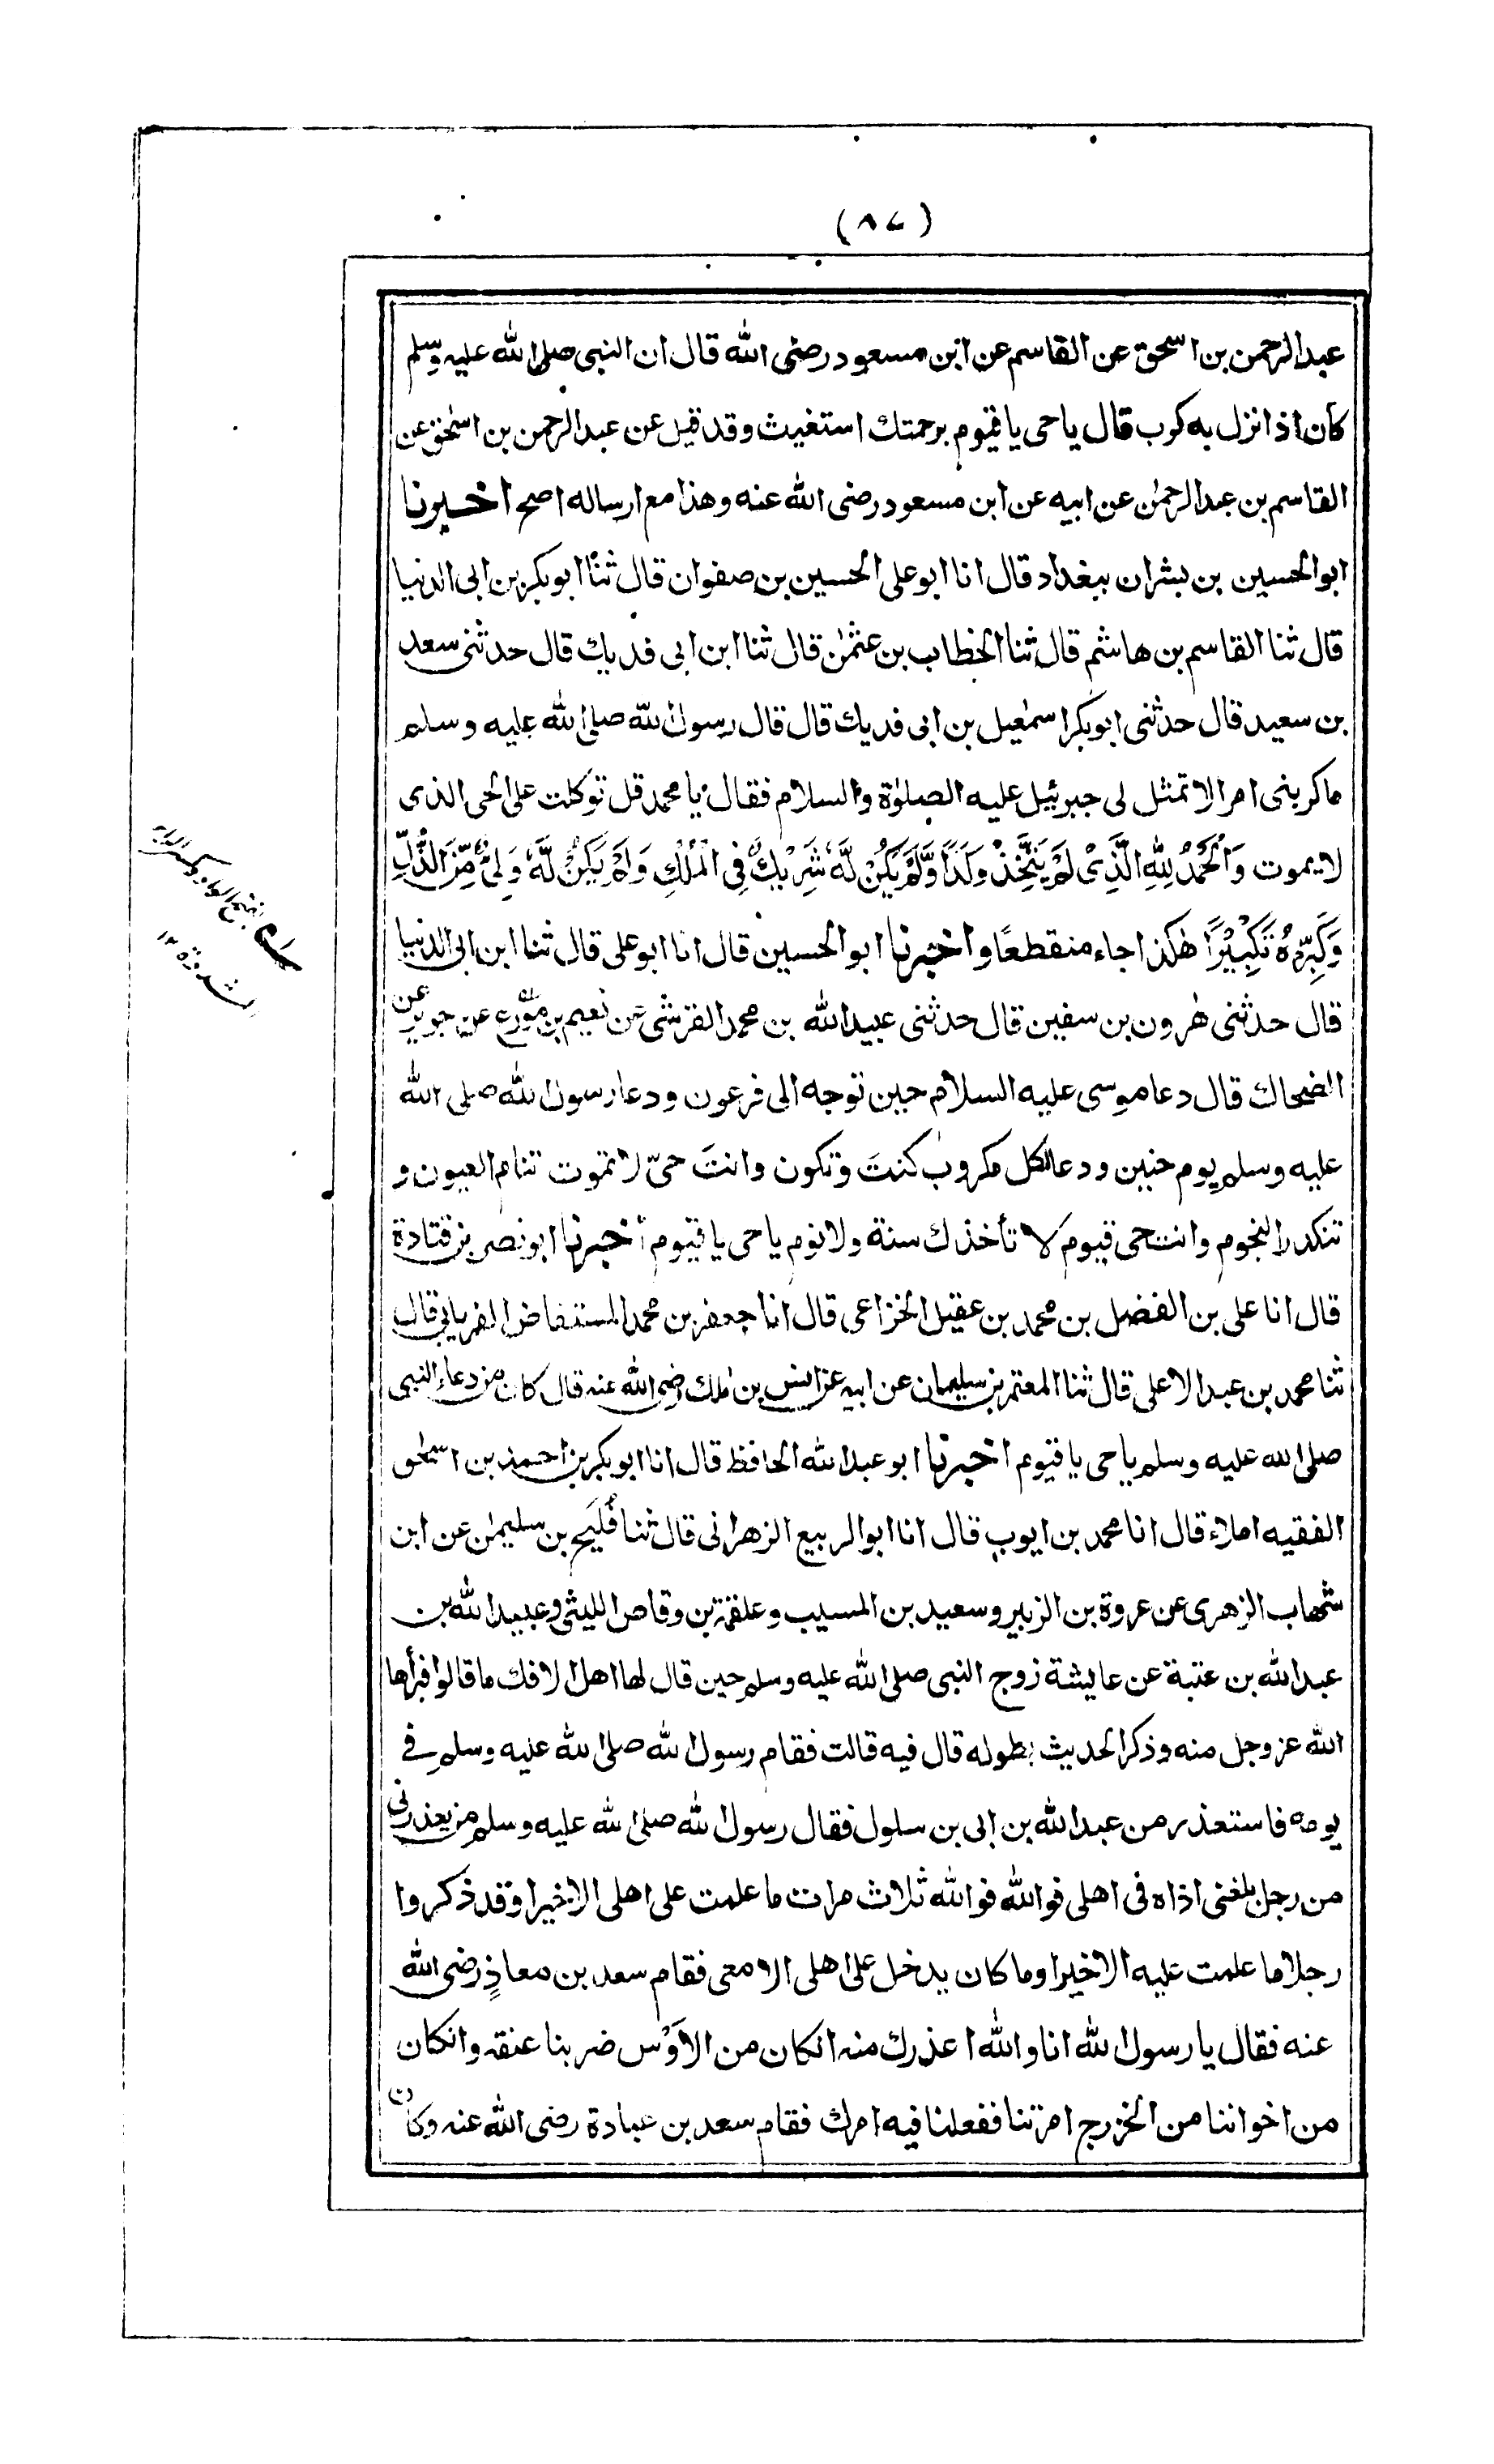 (٨٧)
عبدالرحمن بن اسحق عن القاسم عن ابن مسعود رضى الله قال ان النبى صلى الله عليه وسلم
كان اذا نزل به كرب قال ياحى يا قيوم برحمتك استغيث وقد قيل عن عبدالرحمن بن اسحٰق عن
القاسم بن عبدالرحمٰن عن ابيه عن ابن مسعود رضى الله عنه وهذا مع ارساله اصح اخبرنا
ابوالحسين بن بشران ببغداد قال انا ابو على الحسين بن صفوان قال ثنا ابوبكر بن ابى الدنيا
قال ثنا القاسم بن هاشم قال ثنا الخطاب بن عثمٰن قال ثنا ابن ابى فديك قال حدثنى سعد
بن سعيد قال حدثنى ابوبكر اسمٰعيل بن ابى فديك قال قال رسول الله صلى الله عليه وسلم
ما كربنى امر الا تمثل لى جبرئيل عليه الصلوٰة والسلام فقال يا محمد قل توكلت على الحى الذى
لا يموت وَالْحَمْدُ لِلّٰهِ الَّذِىْ لَمْ يَتَّخِذْ وَلَدًا وَّلَمْ يَكُنْ لَّهٗ شَرِيْكٌ فِى الْمُلْكِ وَلَمْ يَكُنْ لَّهٗ وَلِىٌّ مِّنَ الذُّلِّ
وَكَبِّرْهُ تَكْبِيْرًا هٰكذا جاء منقطعًا واخبرنا ابوالحسين قال انا ابو على قال ثنا ابن ابى الدنيا
قال حدثنى هٰرون بن سفيٰن قال حدثنى عبيدالله بن محمد القرشى عن نعيم بن مُوَرِّع عن جويبر عن
الضحاك قال دعا موسى عليه السلام حين توجه الى فرعون ودعا رسول الله صلى الله
عليه وسلم يوم حنين ودعا لكل مكروب كنتَ وتكون وانتَ حىّ لا تموت تنام العيون و
تنكدر النجوم وانت حى قيوم لا تأخذك سنة ولا نوم ياحى يا قيوم اخبرنا ابونصر بن قتادة
قال انا على بن الفضل بن محمد بن عقيل الخزاعى قال انا جعفر بن محمد المستفاض الفريابى قال
ثنا محمد بن عبدالاعلى قال ثنا المعتمر بن سليمان عن ابيه عن انس بن مٰلك رضى الله عنه قال كان من دعاء النبى
صلى الله عليه وسلم ياحى يا قيوم اخبرنا ابو عبدالله الحافظ قال انا ابوبكر بن احمد بن اسحٰق
الفقيه املاء قال انا محمد بن ايوب قال انا ابوالربيع الزهرانى قال ثنا فُلَيح بن سليمٰن عن ابن
شهاب الزهرى عن عروة بن الزبير وسعيد بن المسيب وعلقمة بن وقاص الليثى وعبيدالله بن
عبدالله بن عتبة عن عايشة زوج النبى صلى الله عليه وسلم حين قال لها اهل الافك ما قالوا فبرأها
الله عزوجل منه وذكر الحديث بطوله قال فيه قالت فقام رسول الله صلى الله عليه وسلم فى
يومه فاستعذر من عبدالله بن ابى بن سلول فقال رسول الله صلى الله عليه وسلم من يعذرنى
من رجل بلغنى اذاه فى اهلى فوالله فوالله ثلاث مرات ما علمت على اهلى الا خيرا وقد ذكروا
رجلا ما علمت عليه الا خيرا وما كان يدخل على اهلى الا معى فقام سعد بن معاذٍ رضى الله
عنه فقال يا رسول الله انا والله اعذرك منه انكان من الاَوْس ضربنا عنقه وانكان
من اخواننا من الخزرج امرتنا ففعلنا فيه امرك فقام سعد بن عبادة رضى الله عنه وكان
بفتح الواو وكسر الراء
المشددة ١٢